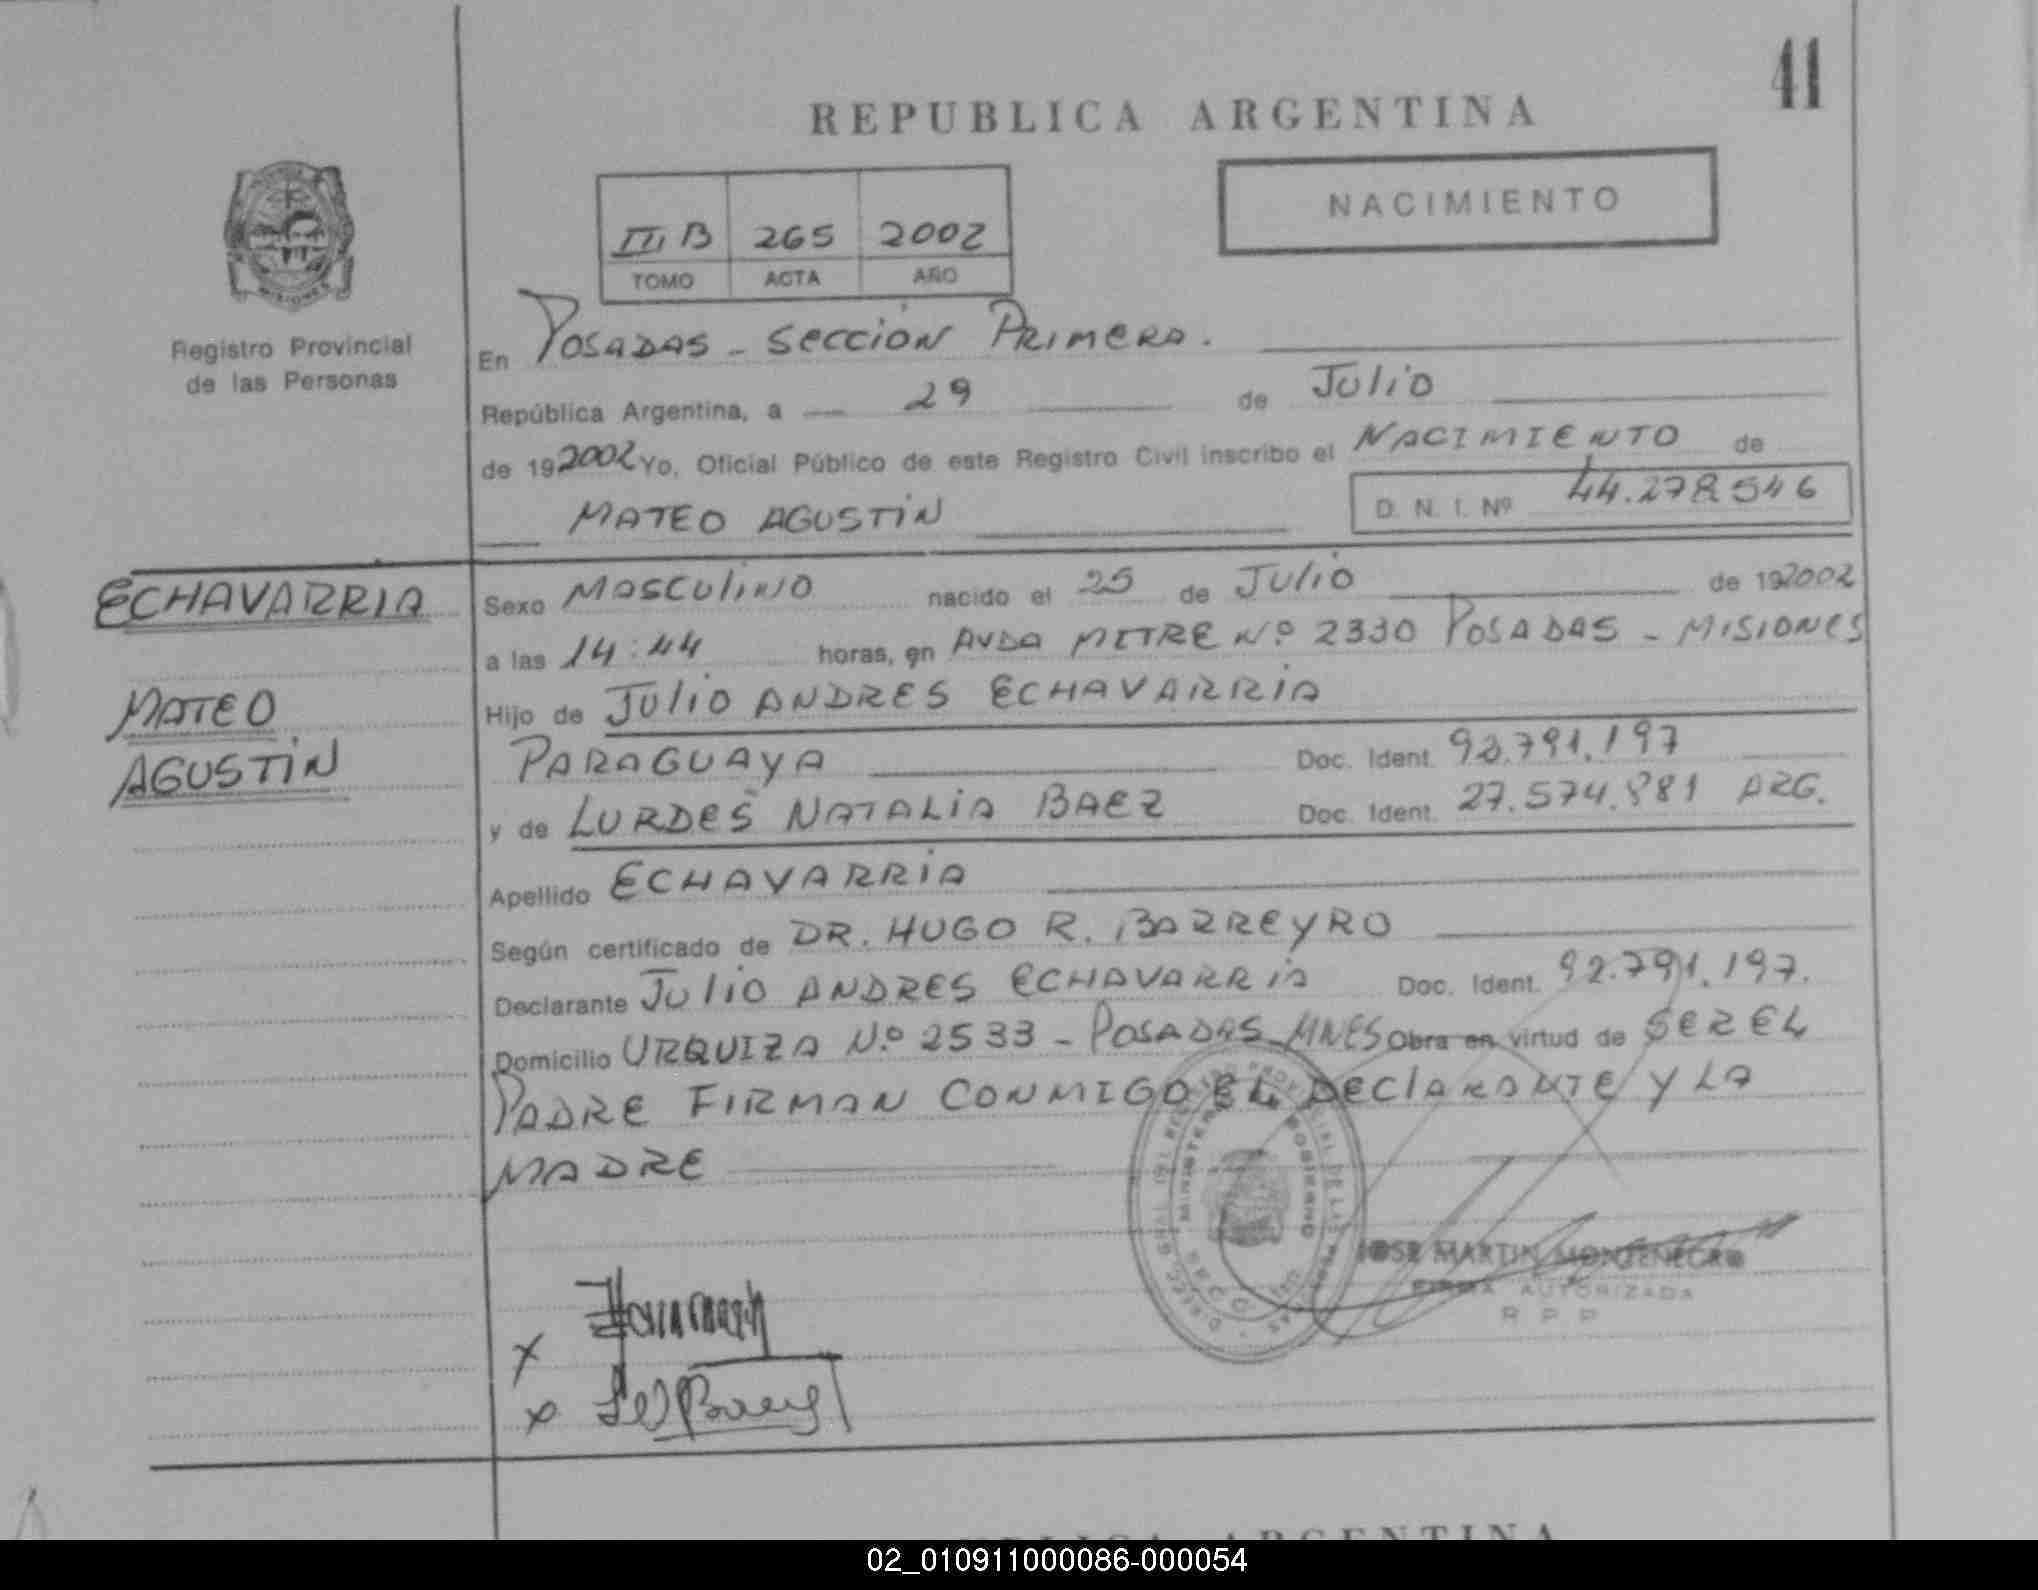 41
REPUBLICA ARGENTINA
NACIMIENTO
III B 265 2002
TOMO ACTA AÑO
Registro Provincial
de las Personas
En POSADAS - SECCIÓN PRIMERA.
República Argentina, a 29 de JULIO
de 192002 Yo, Oficial Público de este Registro Civil inscribo el NACIMIENTO de
MATEO AGUSTIN D. N. I. Nº 44.278.546
ECHAVARRIA
MATEO
AGUSTIN
Sexo MASCULINO nacido el 25 de JULIO de 192002
a las 14:44 horas, en AVDA MITRE Nº 2330 POSADAS - MISIONES
Hijo de JULIO ANDRES ECHAVARRIA
PARAGUAYA Doc. Ident. 92.791.197
y de LURDES NATALIA BAEZ Doc. Ident. 27.574.881 ARG.
Apellido ECHAVARRIA
Según certificado de DR. HUGO R. BARREYRO
Declarante JULIO ANDRES ECHAVARRIA Doc. Ident. 92.791.197.
Domicilio URQUIZA Nº 2533 - POSADAS - MNES Obra en virtud de SER EL
PADRE FIRMAN CONMIGO EL DECLARANTE Y LA
MADRE
JOSE MARTIN MONTENEGRO
FIRMA AUTORIZADA
R P P
ARGENTINA
02_010911000086-000054